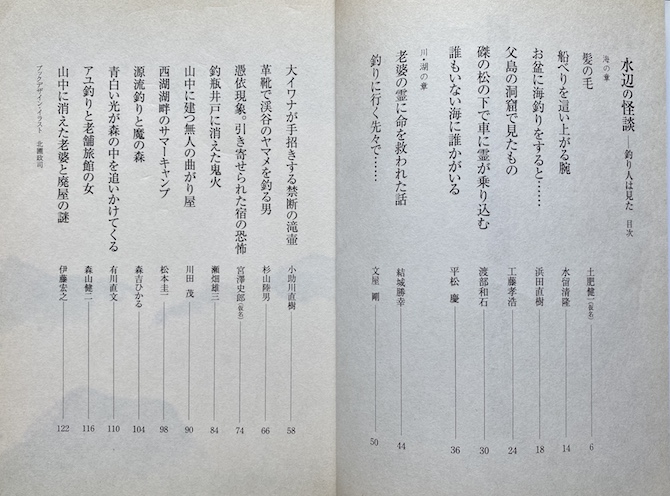 水辺の怪談――釣り人は見た 目次
海の章
髪の毛 土肥健一(仮名) 6
船べりを這い上がる腕 水留清隆 14
お盆に海釣りをすると…… 浜田直樹 18
父島の洞窟で見たもの 工藤孝浩 24
磔の松の下で車に霊が乗り込む 渡部和石 30
誰もいない海に誰かがいる 平松 慶 36
川・湖の章
老婆の霊に命を救われた話 結城勝幸 44
釣りに行く先々で…… 文屋 剛 50
大イワナが手招きする禁断の滝壺 小助川直樹 58
革靴で渓谷のヤマメを釣る男 杉山陸男 66
憑依現象。引き寄せられた宿の恐怖 宮澤史郎(仮名) 74
釣瓶井戸に消えた鬼火 瀬畑雄三 84
山中に建つ無人の曲がり屋 川田 茂 90
西湖湖畔のサマーキャンプ 松本圭一 98
源流釣りと魔の森 森吉ひかる 104
青白い光が森の中を追いかけてくる 有川直文 110
アユ釣りと老舗旅館の女 森山健二 116
山中に消えた老婆と廃屋の謎 伊藤宏之 122
ブックデザイン・イラスト 北瀬政司